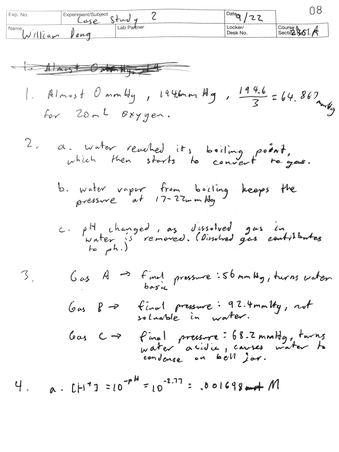 08
Exp. No. Experiment/Subject Case Study 2 Date 9/22
Name William Deng Lab Partner Locker/Desk No. Course & Section
1. Almost 0 mmHg
1. Almost 0 mmHg, 194.6 mmHg, 194.6/3 = 64.867 mmHg
for 20mL oxygen.
2. a. water reached its boiling point,
which then starts to convert to gas.
b. water vapor from boiling keeps the
pressure at 17-22mmHg
c. pH changed, as dissolved gas in
water is removed. (Dissolved gas contributes
to ph.)
3. Gas A → final pressure: 56 mmHg, turns water
basic
Gas B → final pressure: 92.4mmHg, not
soluable in water.
Gas C → final pressure: 68.2 mmHg, turns
water acidic, causes water to
condense on bell jar.
4. a. [H+] = 10^-pH = 10^-2.77 = .001698 M